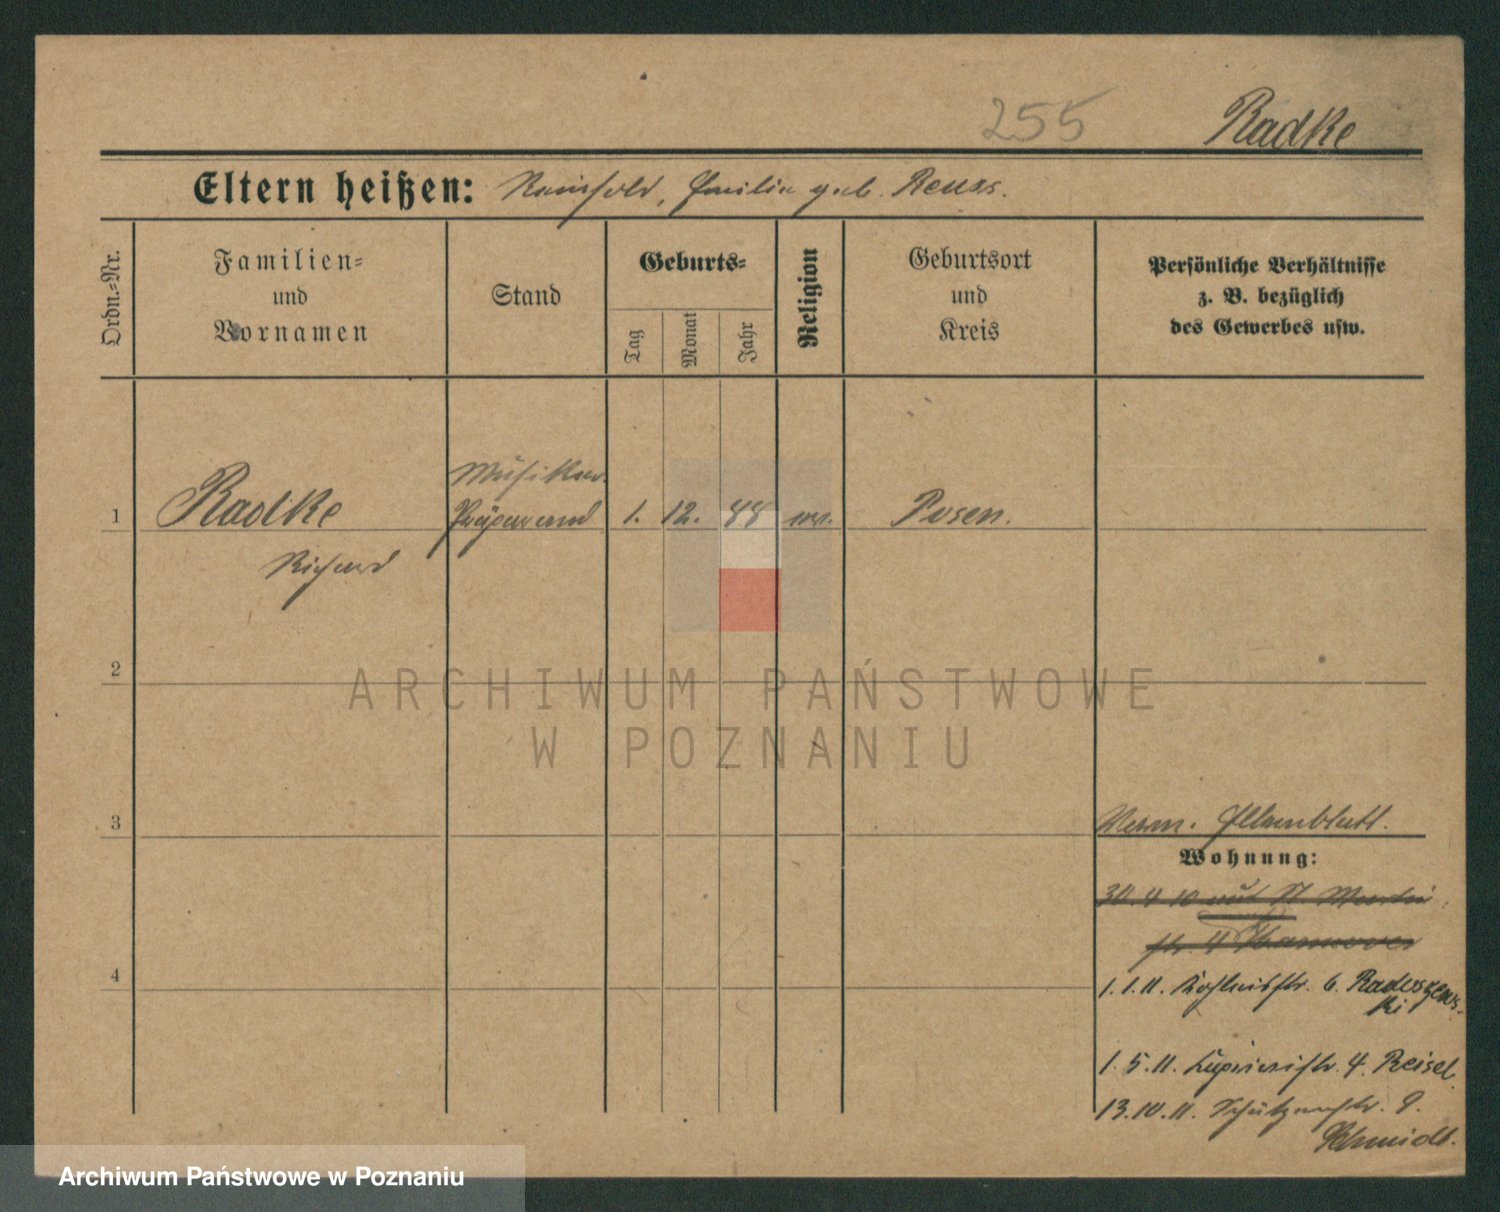 255 Radke
Eltern heißen: Reinhold, Emilie geb. Reuss.
Ordn.-Nr.
Familien-
und
Vornamen
Stand
Geburts-
Tag
Monat
Jahr
Religion
Geburtsort
und
Kreis
Persönliche Verhältnisse
z. B. bezüglich
des Gewerbes usw.
Musiker
1 Radke Präparand 1. 12. 88 ev. Posen.
Richard
2
3
4
Verm. Elternblatt.
Wohnung:
30.4.10 auf St Martin
str. 4 Hannover
1.1.11. 6. Raduszews-
ki
1.5.11. 4. Reisel.
13.10.11. Schützenstr. 9.
Schmidt.
ARCHIWUM PAŃSTWOWE
W POZNANIU
Archiwum Państwowe w Poznaniu